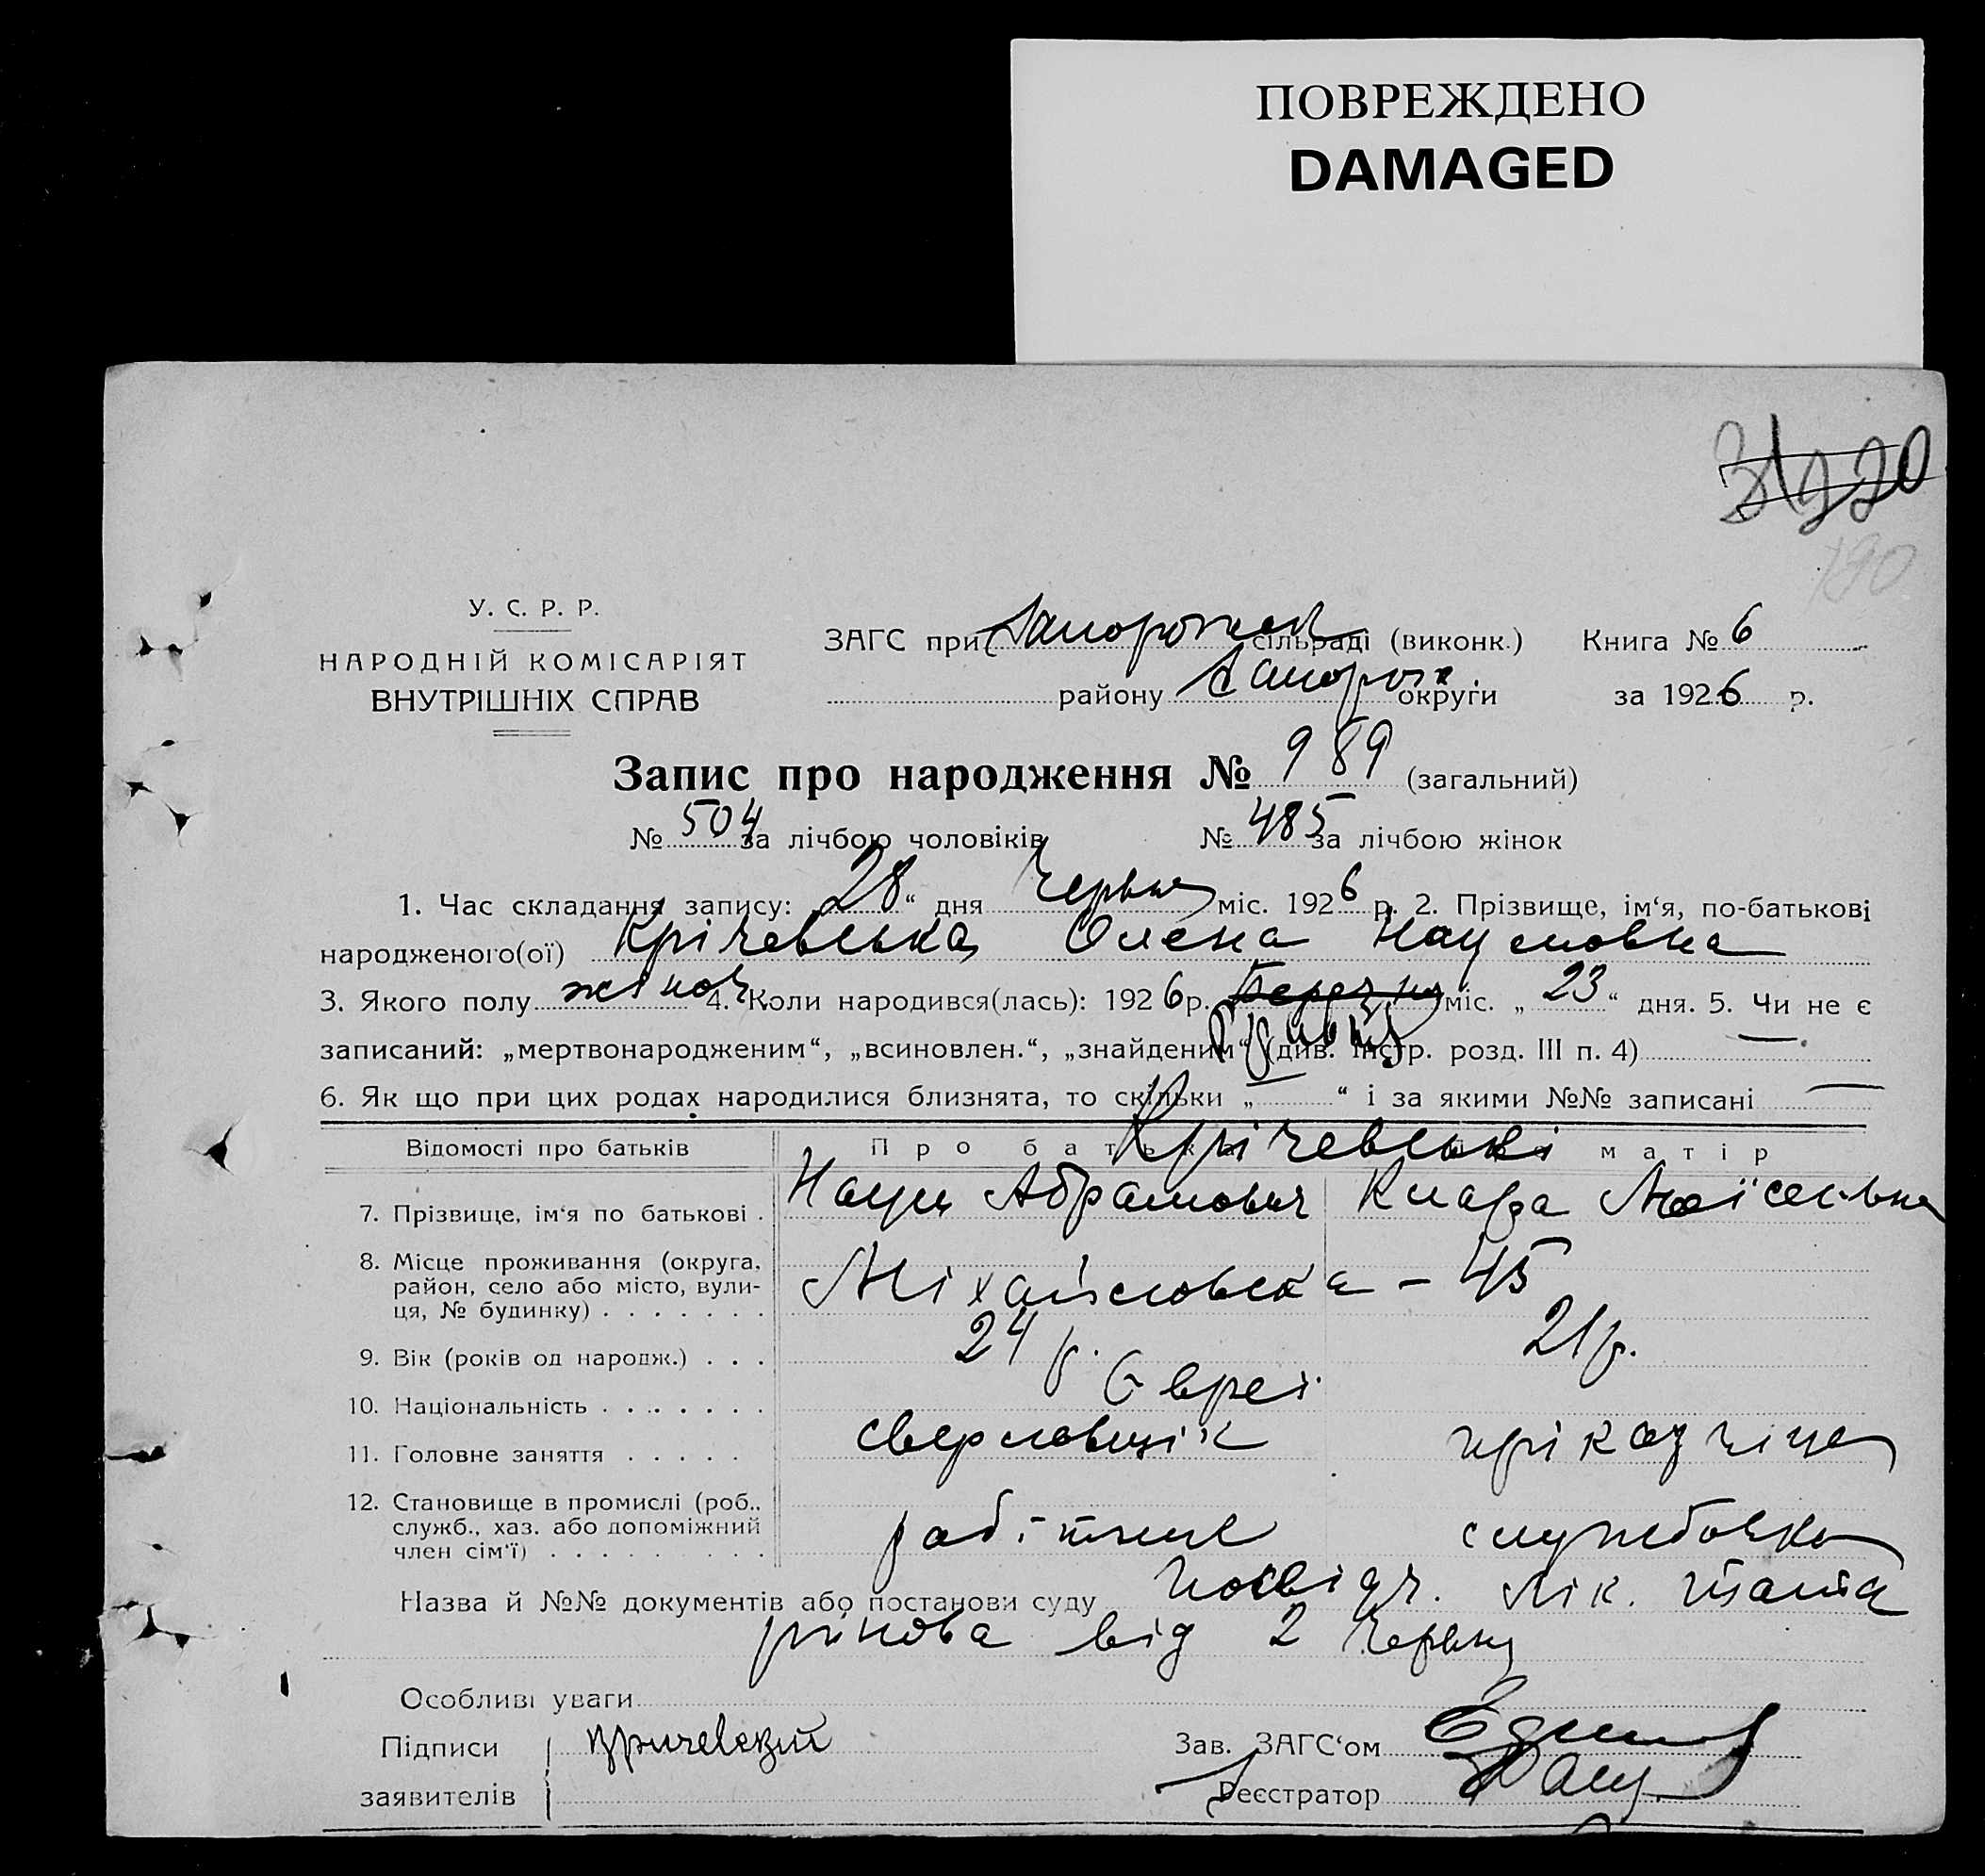 ПОВРЕЖДЕНО
DAMAGED
190
У. С. Р. Р.
НАРОДНІЙ КОМІСАРІЯТ
ВНУТРІШНІХ СПРАВ
ЗАГС при Запорожск сільраді (виконк.) Книга № 6
району Запорож округи за 1926 р.
Запис про народження № 989 (загальний)
№ 504 за лічбою чоловіків № 485 за лічбою жінок
1. Час складання запису: „28“ дня Червня міс. 1926 р. 2. Прізвище, ім‘я, по-батькові
народженого(ої) Крічевська Олена Наумовна
3. Якого полу жіноч. 4. Коли народився(лась): 1926 р. Березня міс. „23“ дня. 5. Чи не є
Червня
записаний: „мертвонародженим“, „всиновлен.“, „знайденим“ (див. Інстр. розд. III п. 4) —
6. Як що при цих родах народилися близнята, то скільки „—“ і за якими №№ записані —
Відомості про батьків Про батька матір
Крічевські
7. Прізвище, ім‘я по батькові . Наум Абрамович Клара Моїсеєвна
8. Місце проживання (округа, район, село або місто, вулиця, № будинку) . . . . . . . Міхайловська – 45
9. Вік (років од народж.) . . . 24 р. 21 р.
10. Національність . . . . . . . Євреї
11. Головне заняття . . . . . сверловщік прікажчіца
12. Становище в промислі (роб., служб., хаз. або допоміжний член сім‘ї) . . . . . . . . . робітник службовка
Назва й №№ документів або постанови суду Посвідч. лік. Шамш
рінова від 2 Червня
Особливі уваги
Підписи Кричевский Зав. ЗАГС‘ом
заявителів Реєстратор